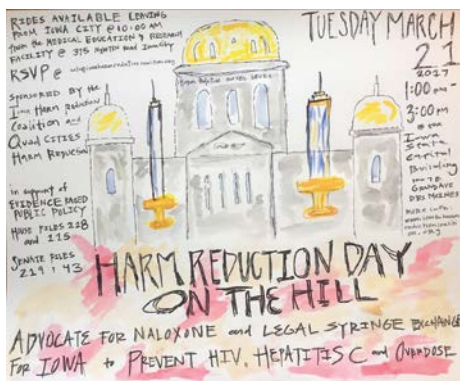 RIDES AVAILABLE LEAVING
FROM IOWA CITY @ 10:00 AM
from the MEDICAL EDUCATION & RESEARCH
FACILITY @ 375 Newton Road Iowa City
RSVP @
SPONSORED BY the
Iowa Harm Reduction
Coalition and
QUAD CITIES
HARM REDUCTION
in support of
EVIDENCE BASED
PUBLIC POLICY
HOUSE FILES 228
and 115
SENATE FILES
219 & 43
TUESDAY MARCH
21
2017
1:00 pm -
3:00 pm
@ the
Iowa
State
Capitol
Building
1007 E
GRAND AVE
DES MOINES
MORE info
HARM REDUCTION DAY
ON THE HILL
ADVOCATE FOR NALOXONE and LEGAL SYRINGE EXCHANGE
FOR IOWA to PREVENT HIV, HEPATITIS C and OVERDOSE